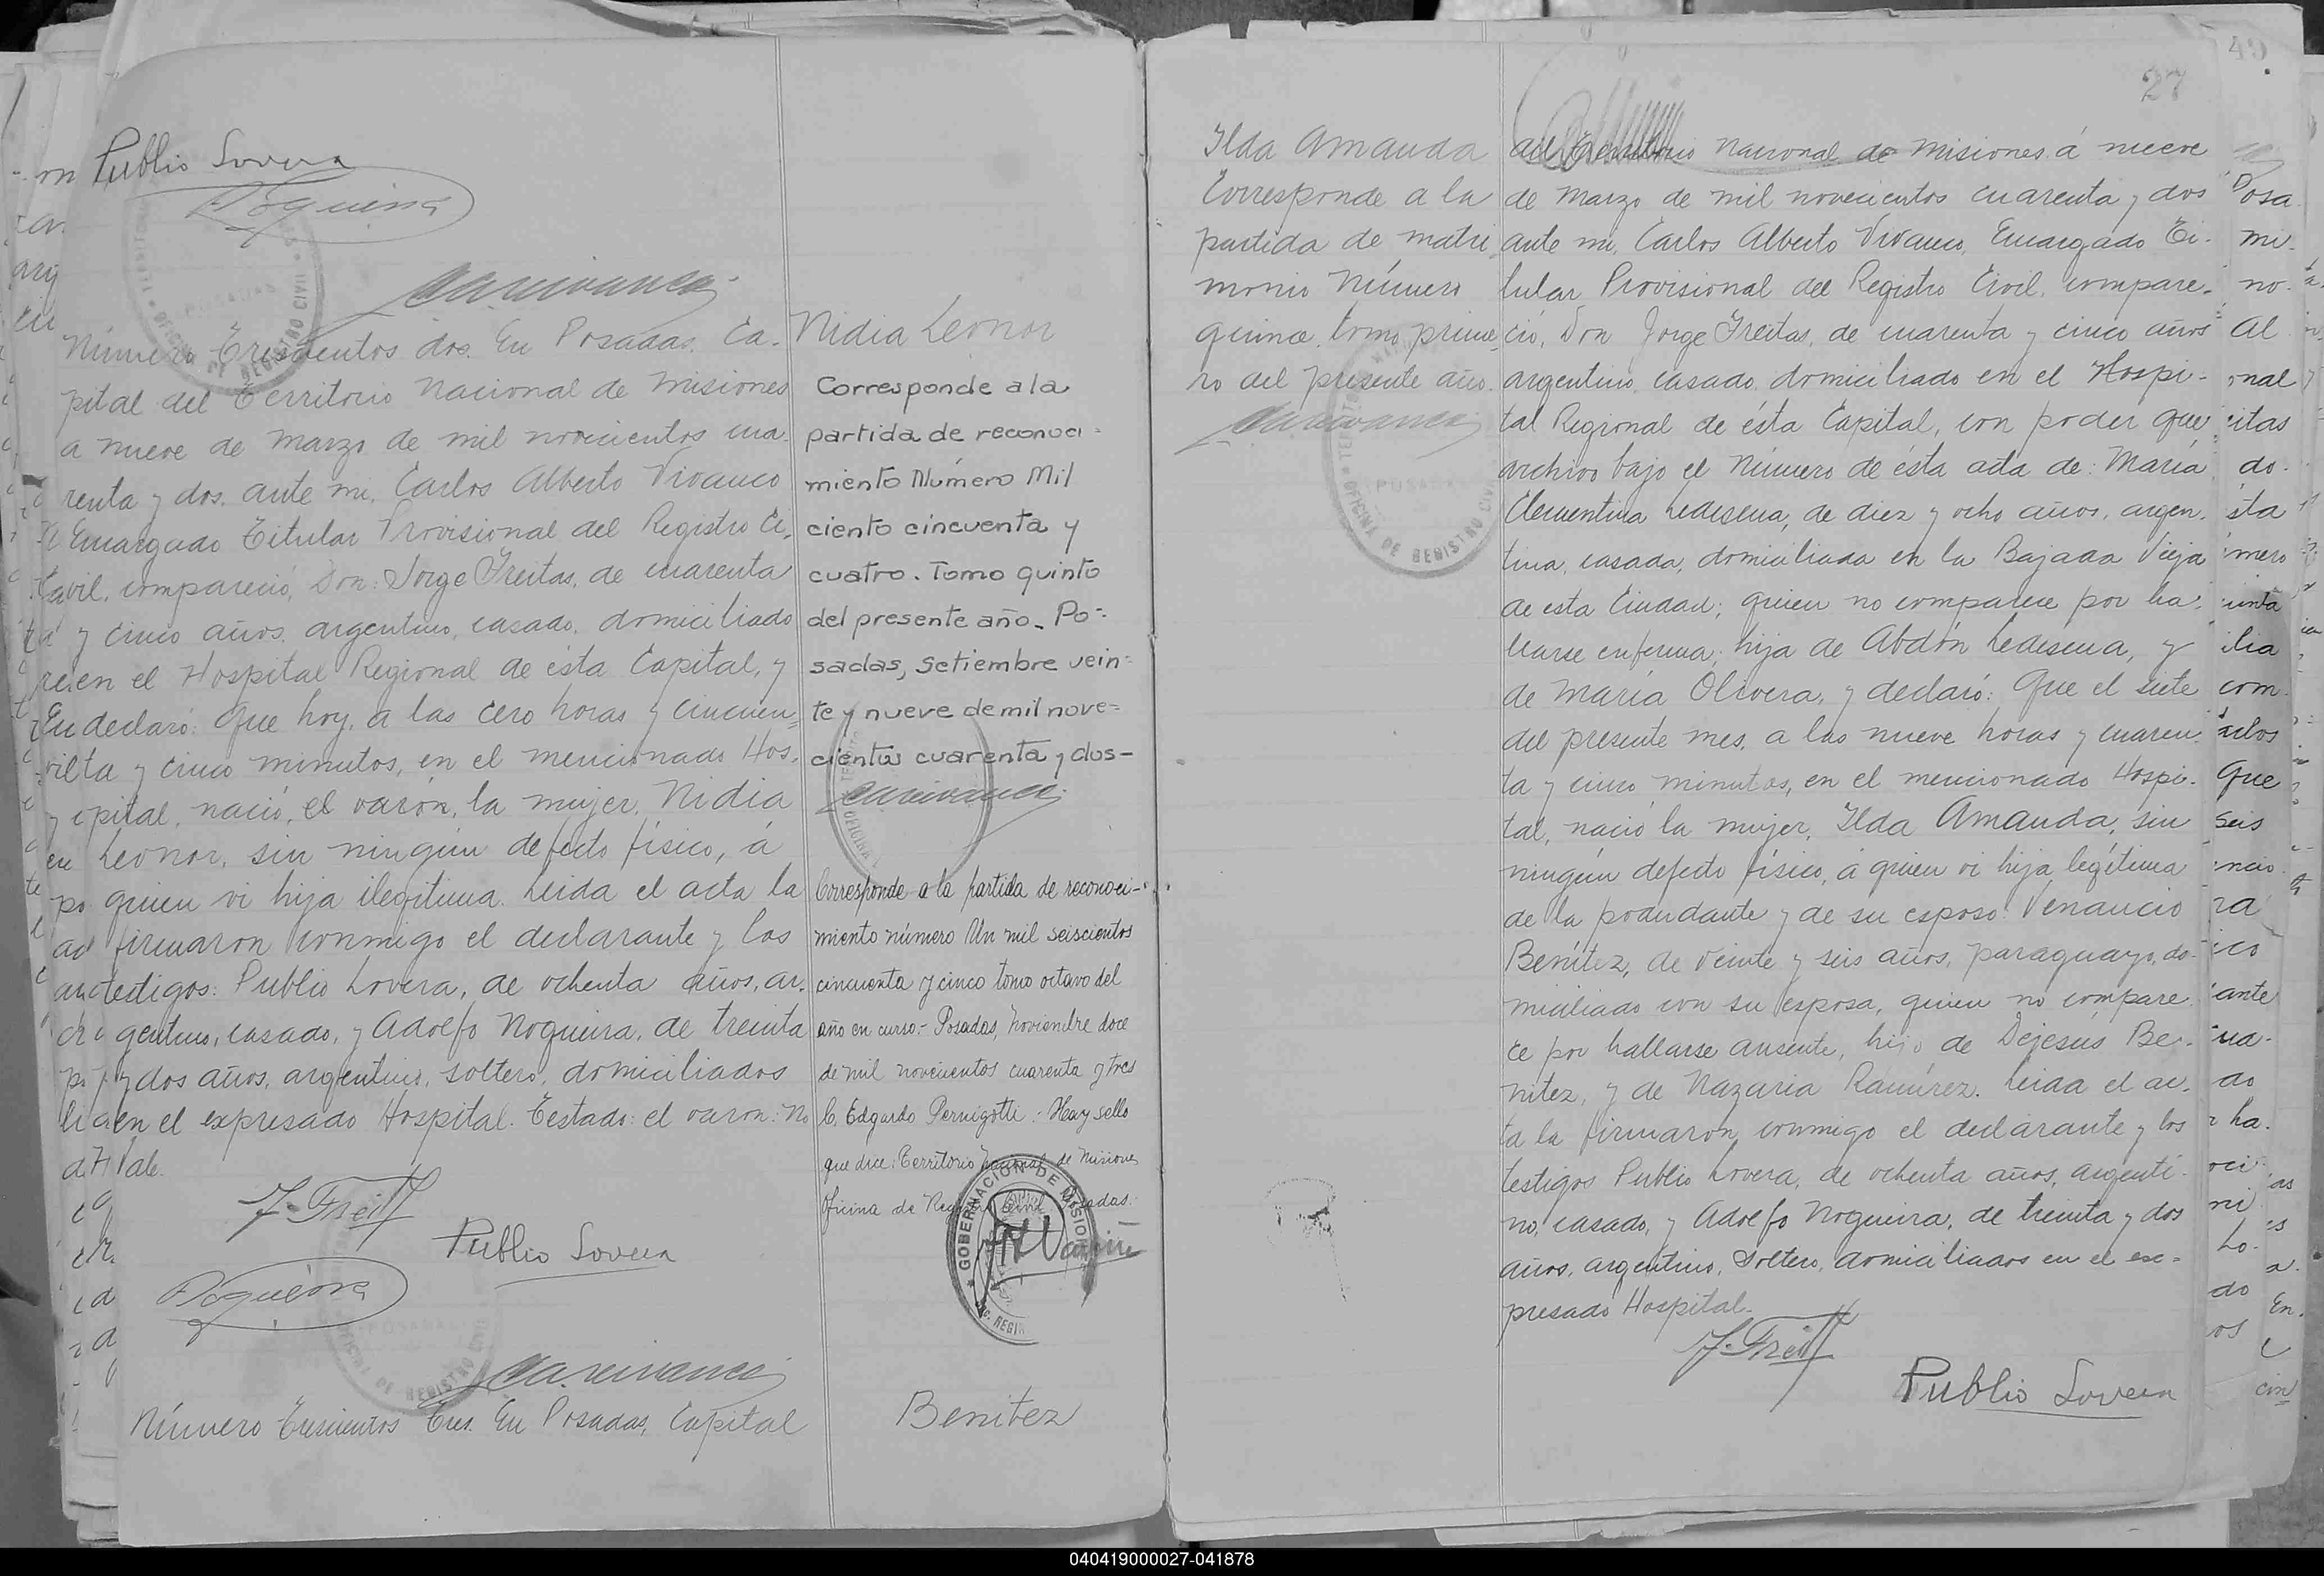 Publio Lovera
Nogueira
Número Trescientos dos. En Posadas, Ca-
pital del Territorio Nacional de Misiones
a nueve de Marzo de mil novecientos cua-
renta y dos, ante mi, Carlos Alberto Vivanco
Encargado Titular Provisional del Registro Ci-
vil, compareció, Don: Jorge Freitas, de cuarenta
y cinco años, argentino, casado, domiciliado
en el Hospital Regional de ésta Capital, y
declaró: Que hoy, a las cero horas y cincuen-
ta y cinco minutos, en el mencionado Hos-
pital, nació, el varón, la mujer, Nidia
Leonor, sin ningún defecto físico, á
quien vi hija ilegítima. Leida el acta la
firmaron conmigo el declarante y los
testigos: Publio Lovera, de ochenta años, ar-
gentino, casado, y Adolfo Nogueira, de treinta
y dos años, argentino, soltero, domiciliados
en el expresado Hospital. Testado: el varon: No
Vale.
J. Freitas
Publio Lovera
Nogueira
Número Trescientos Tres. En Posadas, Capital
Nidia Leonor
Corresponde a la
partida de reconoci-
miento Número Mil
ciento cincuenta y
cuatro. Tomo quinto
del presente año. Po-
sadas, Setiembre vein-
te y nueve de mil nove-
cientos cuarenta y dos-
Corresponde a la partida de reconoci-
miento número Un mil seiscientos
cincuenta y cinco tomo octavo del
año en curso.- Posadas, Noviembre doce
de mil novecientos cuarenta y tres
C. Edgardo Pernigotti: Hay sello
que dice: Territorio Nacional de Misiones
Oficina de Registro Civil Posadas.
GOBERNACION DE MISIONES
Benitez
27
49
Ilda Amanda
Corresponde a la
partida de matri-
monio Número
quince, tomo prime-
ro del presente año.
TERRITORIO
POSADAS
OFICINA DE REGISTRO CIVIL
del Territorio Nacional de Misiones á nueve
de Marzo de mil novecientos cuarenta y dos
ante mi, Carlos Alberto Vivanco, Encargado Ti-
tular Provisional del Registro Civil, compare-
ció, Don Jorge Freitas, de cuarenta y cinco años
argentino, casado, domiciliado en el Hospi-
tal Regional de ésta Capital, con poder que
archivo bajo el Número de ésta acta de: María
Clementina Ledesma, de diez y ocho años, argen-
tina, casada, domiciliada en la Bajada Vieja
de esta Ciudad; quien no comparece por ha-
llarse enferma; hija de Abdón Ledesma, y
de María Olivera, y declaró: Que el siete
del presente mes, a las nueve horas y cuaren-
ta y cinco minutos, en el mencionado Hospi-
tal, nació la mujer, Ilda Amanda, sin
ningún defecto físico, á quien vi hija legítima
de la poderdante y de su esposo: Venancio
Benítez, de veinte y seis años, paraguayo, do-
miciliado con su esposa, quien no compare-
ce por hallarse ausente, hijo de Dejesús Be-
nitez, y de Nazaria Ramírez. Leida el ac-
ta la firmaron conmigo el declarante y los
testigos Publio Lovera, de ochenta años, argenti-
no, casado, y Adolfo Nogueira, de treinta y dos
años, argentino, soltero, domiciliados en el ex-
presado Hospital.
J. Freitas
Publio Lovera
040419000027-041878